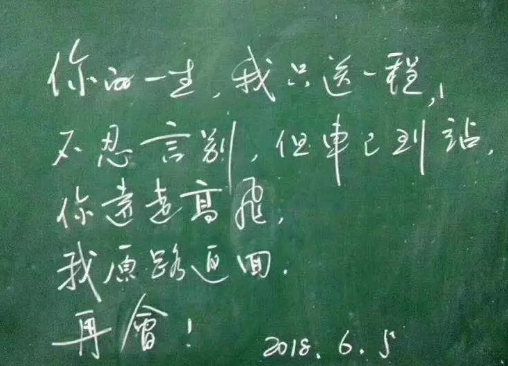 你的一生，我只送一程，
不忍言别，但車已到站，
你遠走高飛，
我原路返回.
再會！ 2018.6.5